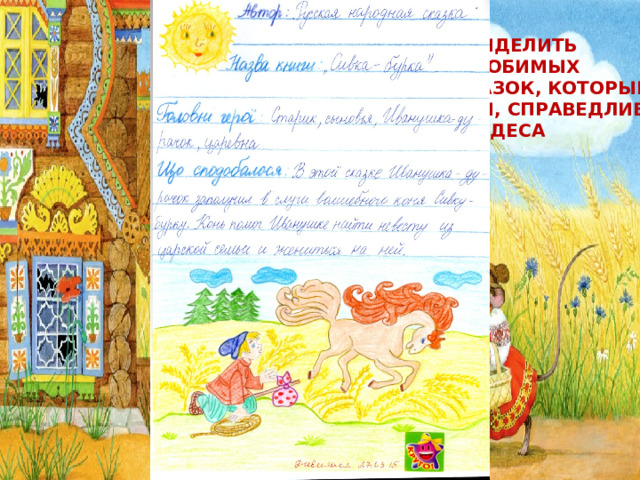 Автор: Русская народная сказка
Назва книги: „Сивка-бурка"
Головні герої: Старик, сыновья, Иванушка-ду-
рачок, царевна
Що сподобалося: В этой сказке Иванушка-ду-
рачок заполучил в слуги волшебного коня Сивку-
бурку. Конь помог Иванушке найти невесту из
царской семьи и жениться на ней.
27.03.15
КРУТО!
ДЕЛИТЬ
ОБИМЫХ
АЗОК, КОТОРЫ
, СПРАВЕДЛИВ
ДЕСА